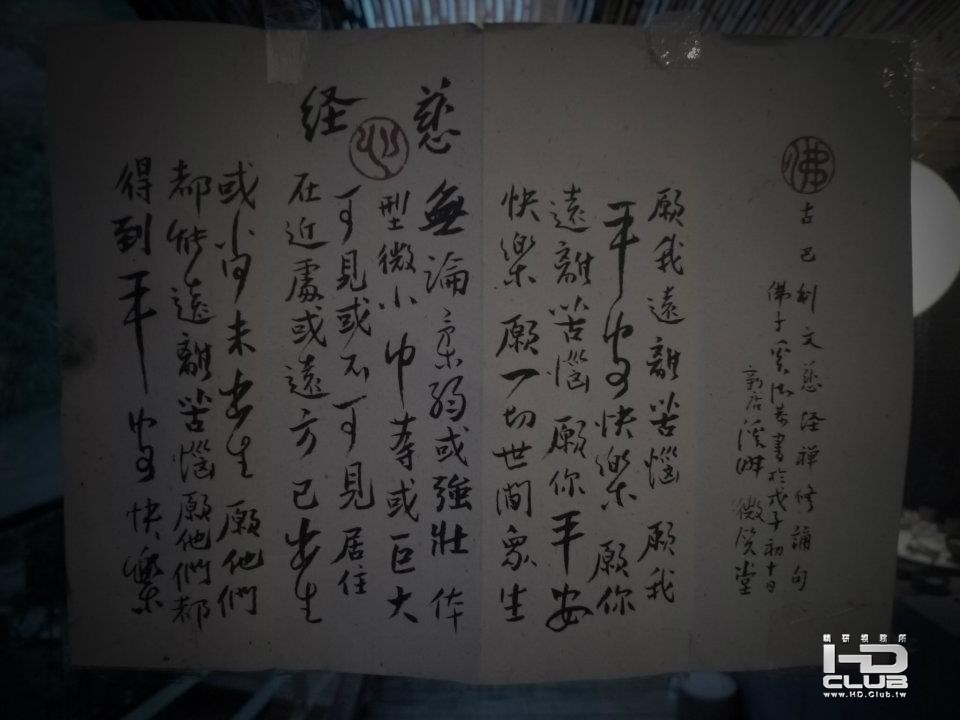 慈経
佛
古巴利文慈经禅修誦句
佛子奚淞恭書於戊子初十日
新店溪畔 微笑堂
願我遠離苦惱 願我
平安快樂 願你
遠離苦惱 願你平安
快樂 願一切世間眾生
無論柔弱或強壯 体
型微小 中等或巨大
可見或不可見 居住
在近處或遠方 已出生
或尚未出生 願他們
都能遠離苦惱願他們都
得到平安快樂
心
精研視務所
HD
CLUB
www.HD.Club.tw